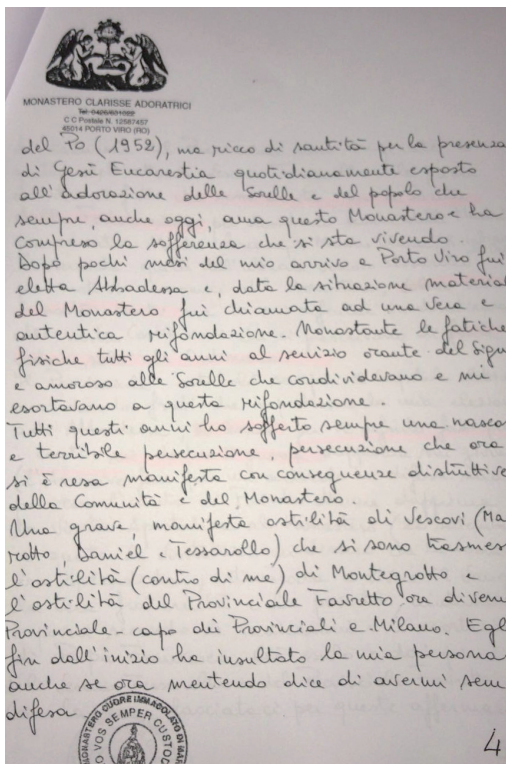 MONASTERO CLARISSE ADORATRICI
Tel. 0426/631092
C C Postale N. 12587457
45014 PORTO VIRO (RO)
del Po (1952), ma ricco di santità per la presenza
di Gesù Eucarestia quotidianamente esposto
all'adorazione delle Sorelle e del popolo che
sempre, anche oggi, ama questo Monastero e ha
compreso la sofferenza che si sta vivendo.
Dopo pochi mesi del mio arrivo a Porto Viro fui
eletta Abbadessa e, data la situazione material
del Monastero fui chiamata ad una vera e
autentica rifondazione. Nonostante le fatiche
fisiche tutti gli anni al servizio orante del Sign
e amoroso alle Sorelle che condividevano e mi
esortavano a questa rifondazione.
Tutti questi anni ho sofferto sempre una nasco
e terribile persecuzione, persecuzione che ora
si è resa manifesta con conseguenze distruttive
della Comunità e del Monastero.
Una grave, manifesta ostilità di Vescovi (Ma
rotto, Daniel e Tessarollo) che si sono trasmes
l'ostilità (contro di me) di Montegrotto e
l'ostilità del Provinciale Favretto ora diven
Provinciale-capo dei Provinciali e Milano. Egl
fin dall'inizio ha insultato la mia persona
anche se ora mentendo dice di avermi sem
difesa.
MONASTERO CUORE IMMACOLATO DI MAR
O VOS SEMPER CUSTOD
4